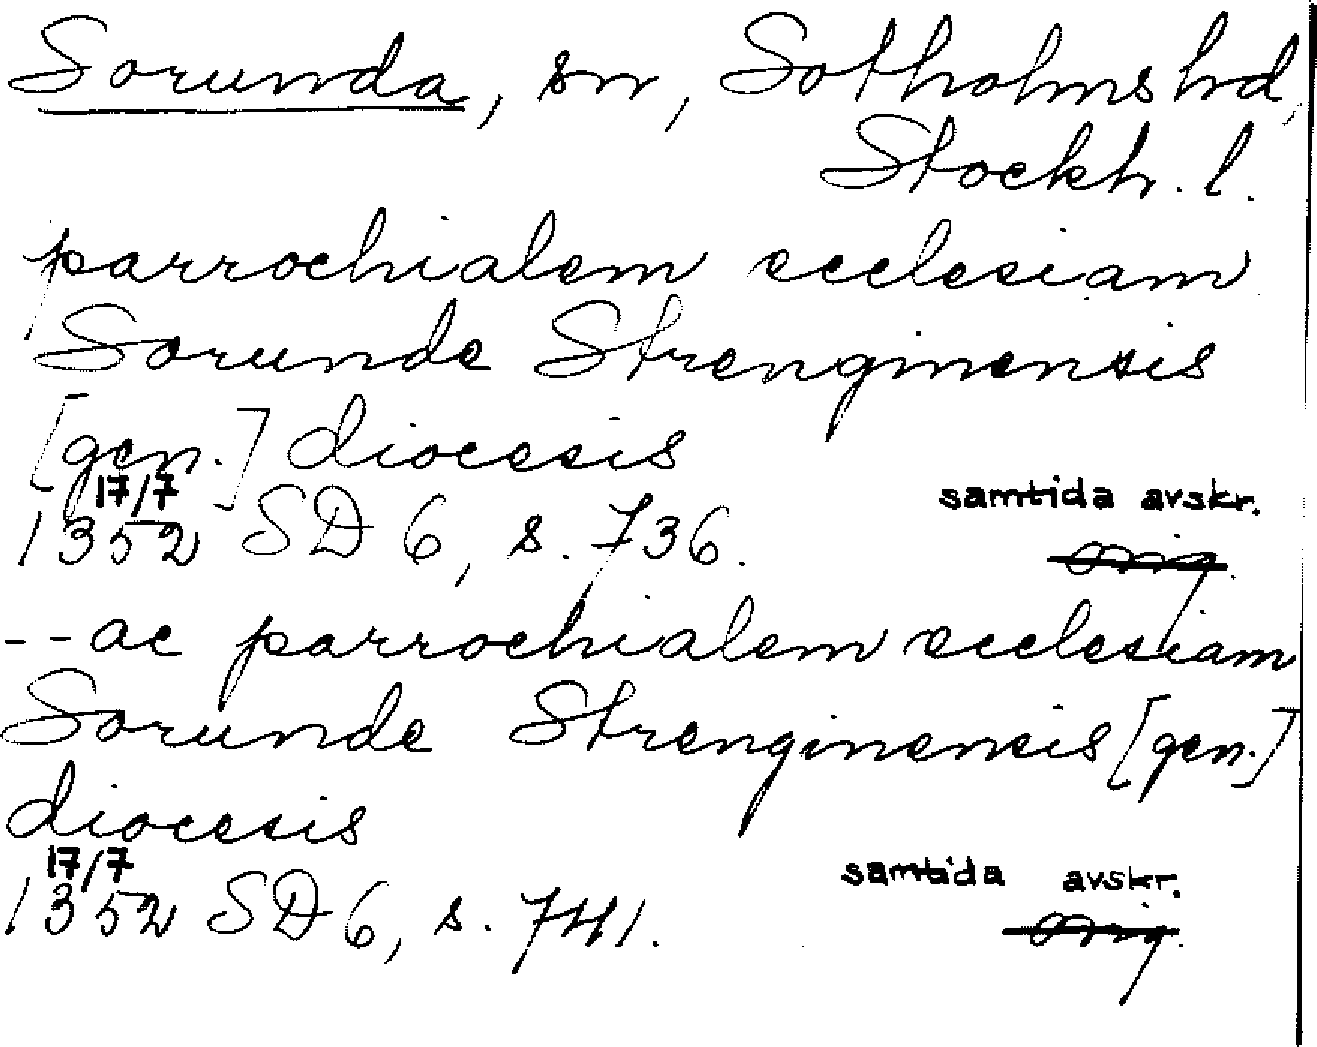 Sorunda, sn, Sotholms hd,
Stockh. l.
parrochialem ecclesiam
Sorunde Strenginensis
[gen.] diocesis
17/7
1352 SD 6, s. 736. samtida avskr.
orig.
--ac parrochialem ecclesiam
Sorunde Strenginensis [gen.]
diocesis
17/7
1352 SD 6, s. 741. samtida avskr.
orig.